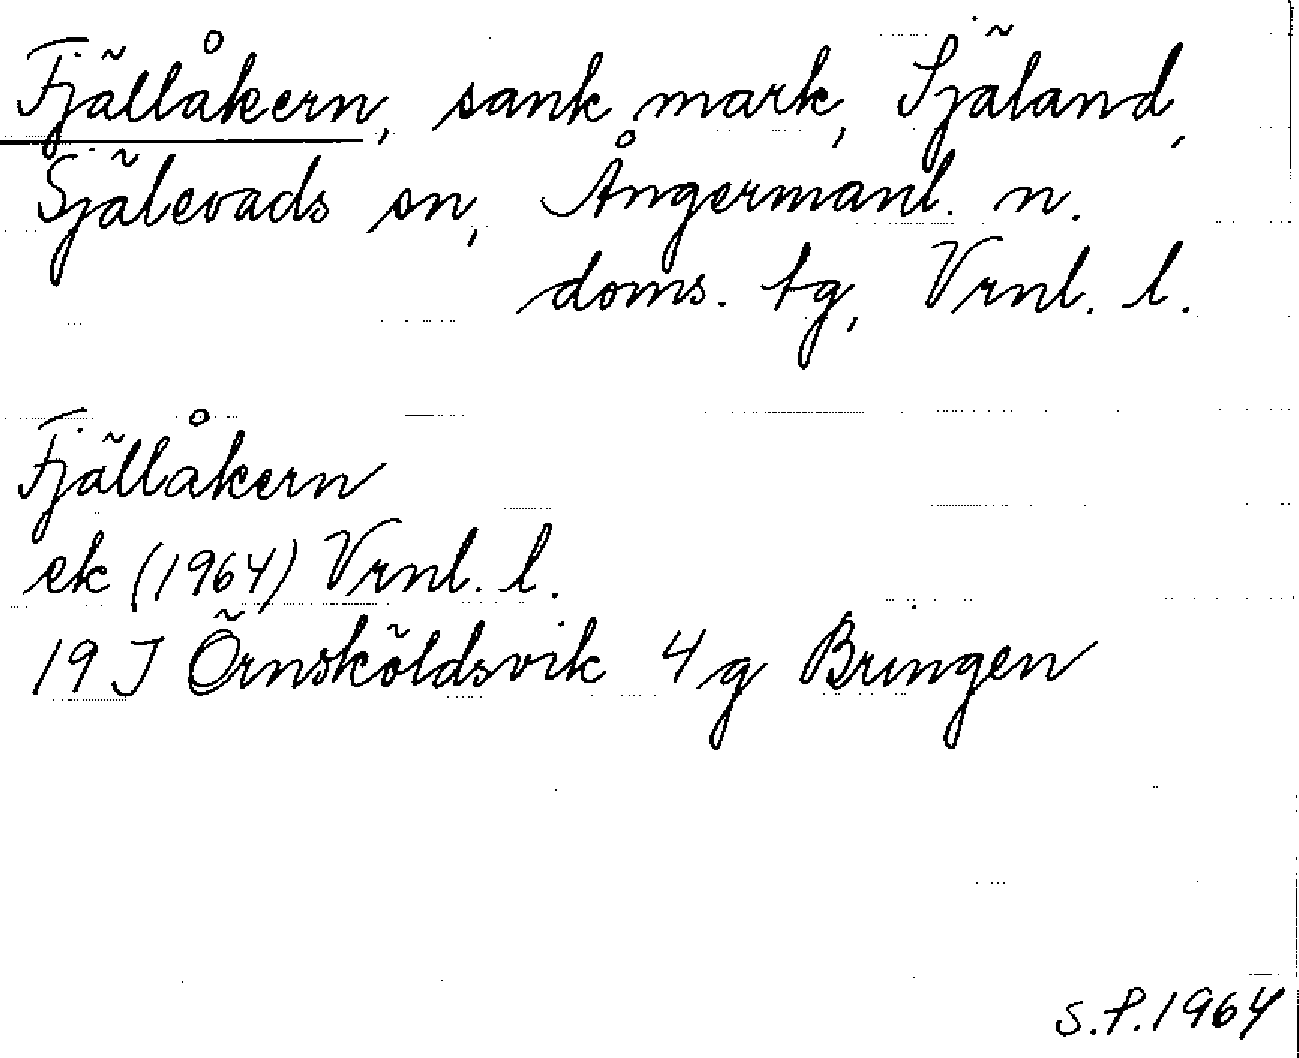 Fjällåkern, sank mark, Själand,
Själevads sn, Ångermanl. n.
doms. tg, Vrnl. l.
Fjällåkern
ek (1964) Vrnl. l.
19 J Örnsköldsvik 4 g Bringen
S.P. 1964